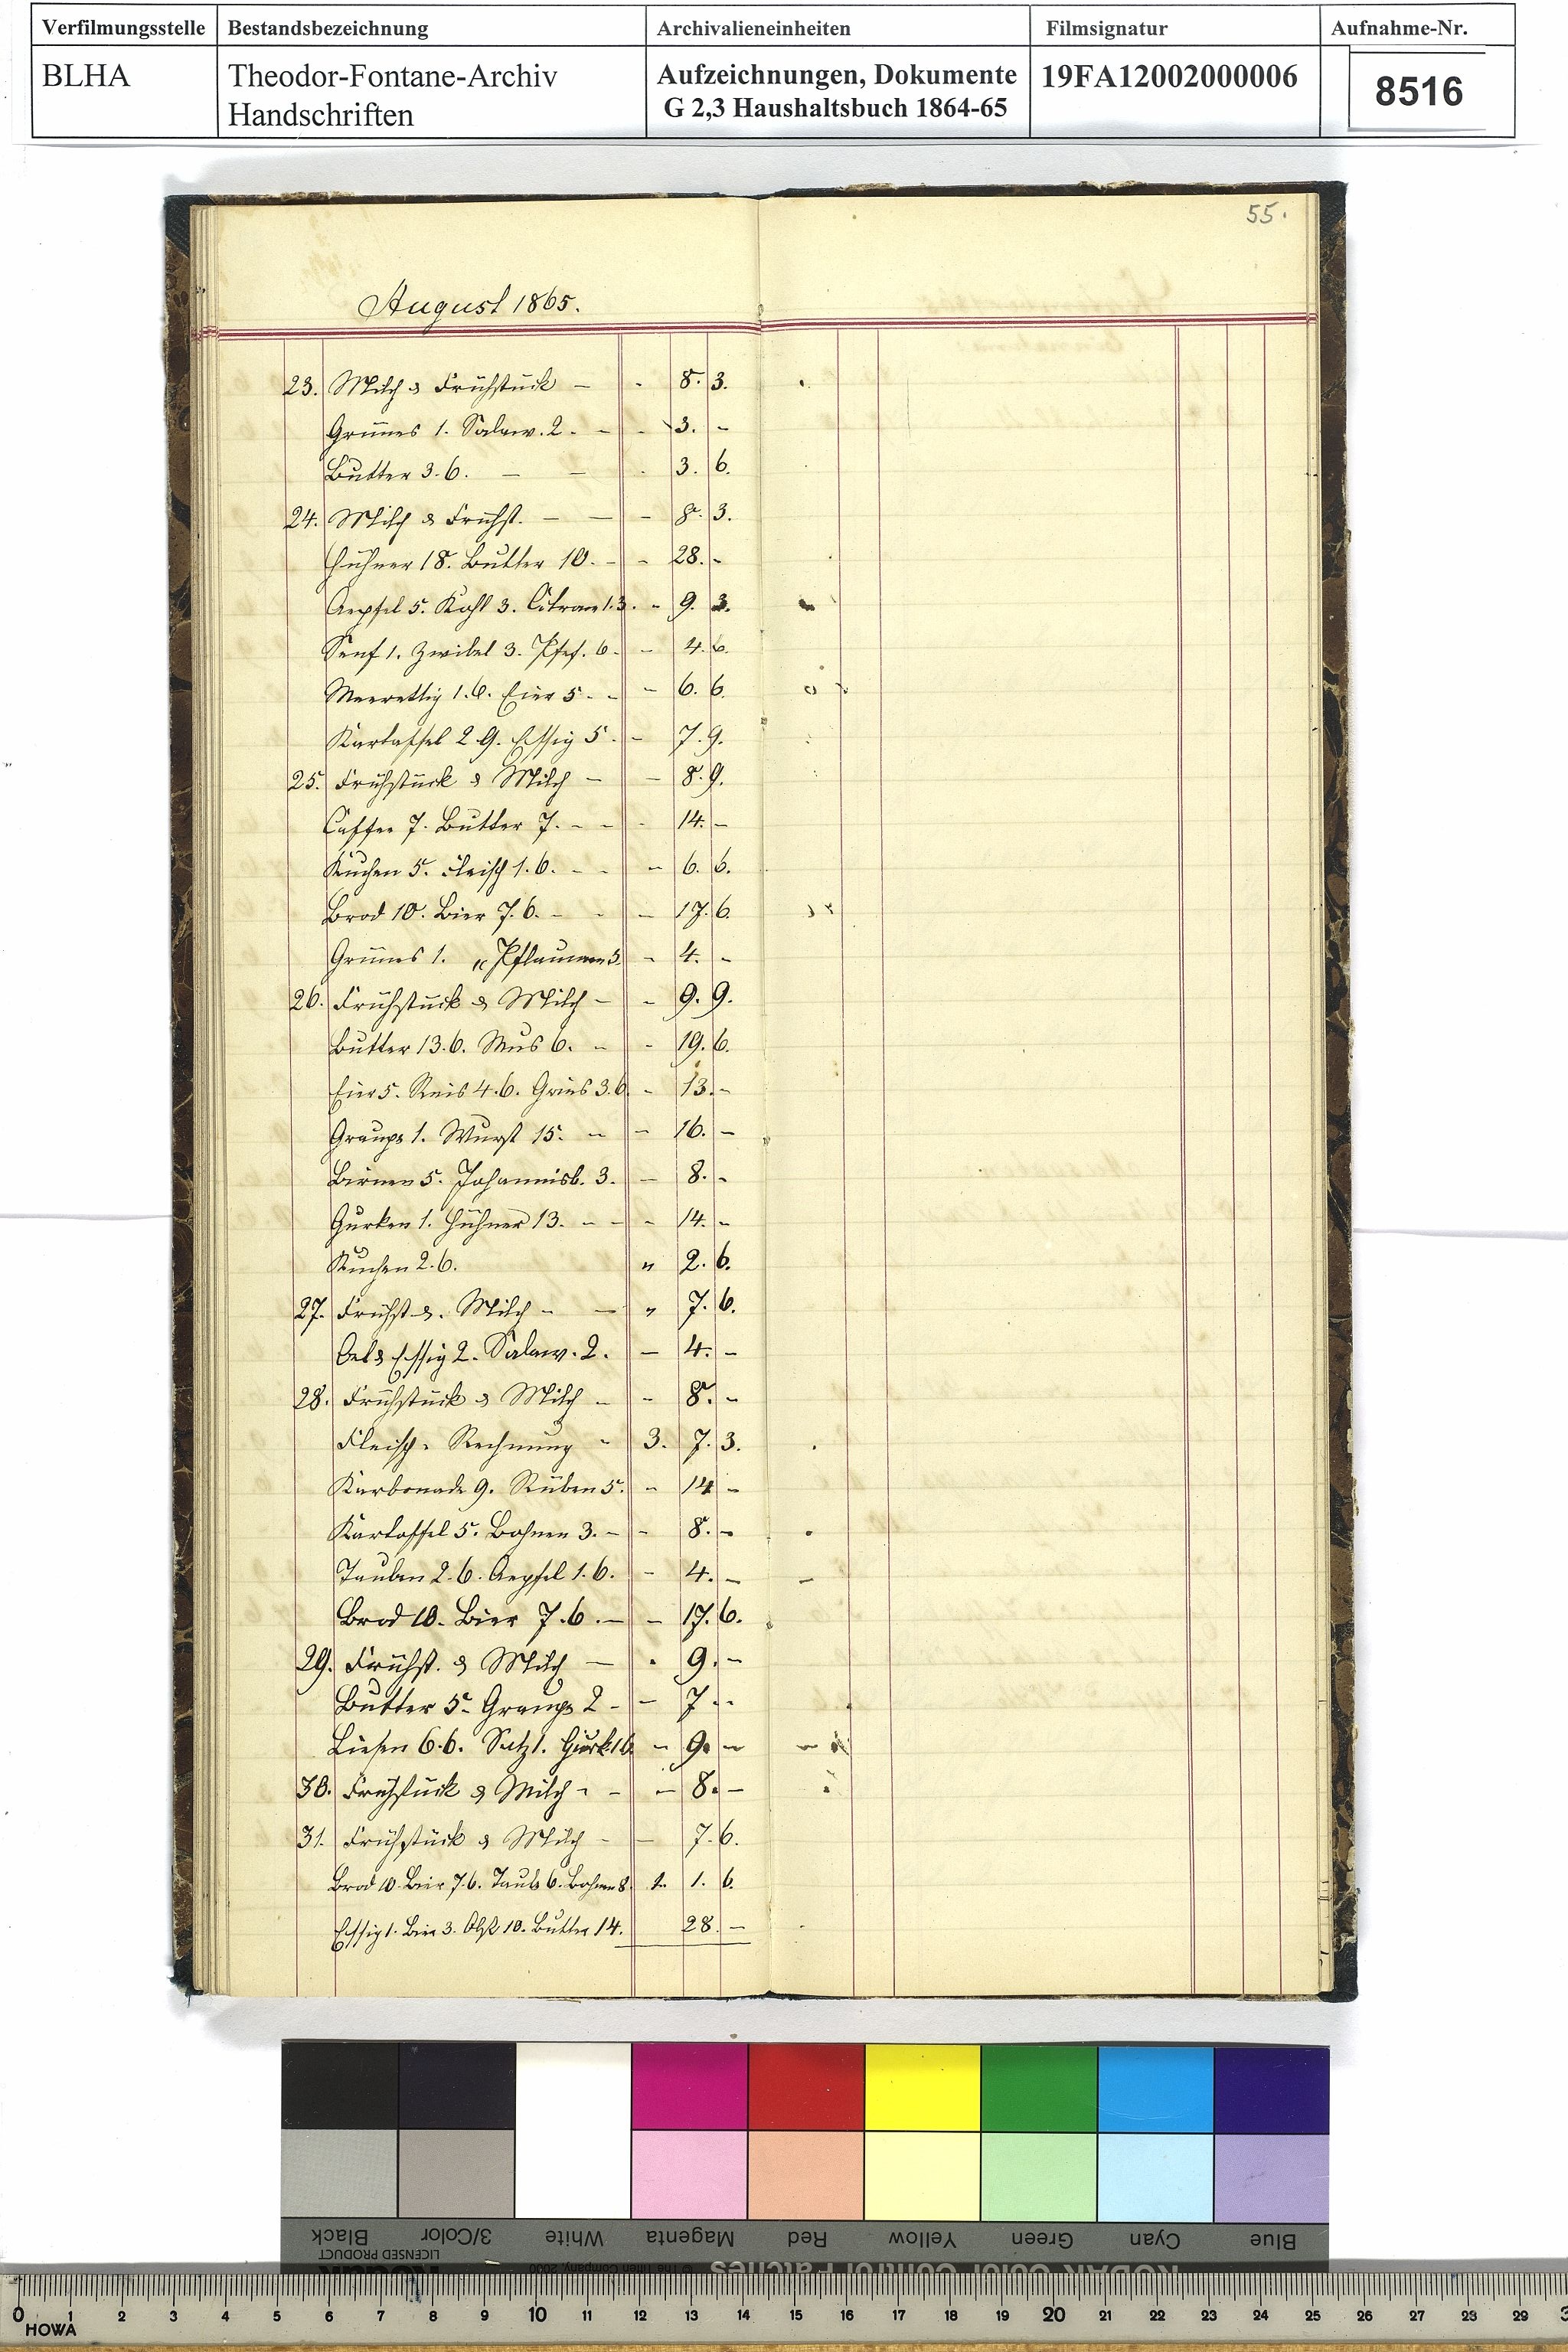 Verfilmungsstelle Bestandsbezeichnung Archivalieneinheiten Filmsignatur Aufnahme-Nr.
BLHA Theodor-Fontane-Archiv Handschriften Aufzeichnungen, Dokumente G 2,3 Haushaltsbuch 1864-65 19FA12002000006 8516
55.
August 1865.
23. Milch & Frühstück – - 8. 3.
Grünes 1. Salaw. 2. - - - 3. -
Butter 3. 6. – – - 3. 6.
24. Milch & Frühst. – – - 8. 3.
Hühner 18. Butter 10. - - 28. -
Aepfel 5. Kohl 3. Citrone 1.3. - 9. 3.
Senf 1. Zwibel 3. Pfef. 6. - 4. 6.
Meerettig 1.6. Eier 5. - - 6. 6.
Kartoffel 2 9. Essig 5. - 7. 9.
25. Frühstück & Milch – - 8. 9.
Caffee 7. Butter 7. - - - 14. -
Kuchen 5. Fleisch 1. 6. - - - 6. 6.
Brod 10. Bier 7. 6. - - - 17. 6.
Grünes 1. „ Pflaumen 3. - 4. -
26. Frühstück & Milch - - 9. 9.
Butter 13.6. Mus 6. - - 19. 6.
Eier 5. Reis 4.6. Gries 3.6. - 13. -
Graupe 1. Wurst 15. - - 16. -
Birnen 5. Johannisb. 3. - 8. -
Gurken 1. Hühner 13. - - - 14. -
Kuchen 2. 6. " 2. 6.
27. Frühst &. Milch - – " 7. 6.
Oel & Essig 2. Salaw. 2. – 4. -
28. Frühstück & Milch - - 8. -
Fleisch-Rechnung - 3. 7. 3.
Karbonade 9. Rüben 5. - 14 -
Kartoffel 5. Bohnen 3. - - 8. -
Tauben 2. 6. Aepfel 1. 6. - 4. -
Brod 10. Bier 7. 6. – - 17. 6.
29. Frühst. & Milch – - 9. -
Butter 5. Graupe 2 - - 7 - -
6.6. Salz 1. Gurk 1 6. - 9. -
30. Frühstück & Milch - - - 8. -
31. Frühstück & Milch - – 7. 6.
Brod 10. Bier 7.6. Taube 6. Bohnen 8. 1. 1. 6.
Essig 1. Bier 3. Obst 10. Butter 14. 28. -
Black 3/Color White Magenta Red Yellow Green Cyan Blue
LICENSED PRODUCT
Kodak © The Tiffen Company, 2000 KODAK Color Control Patches
0 1 2 3 4 5 6 7 8 9 10 11 12 13 14 15 16 17 18 19 20 21 22 23 24 25 26 27 28 29 3
HOWA